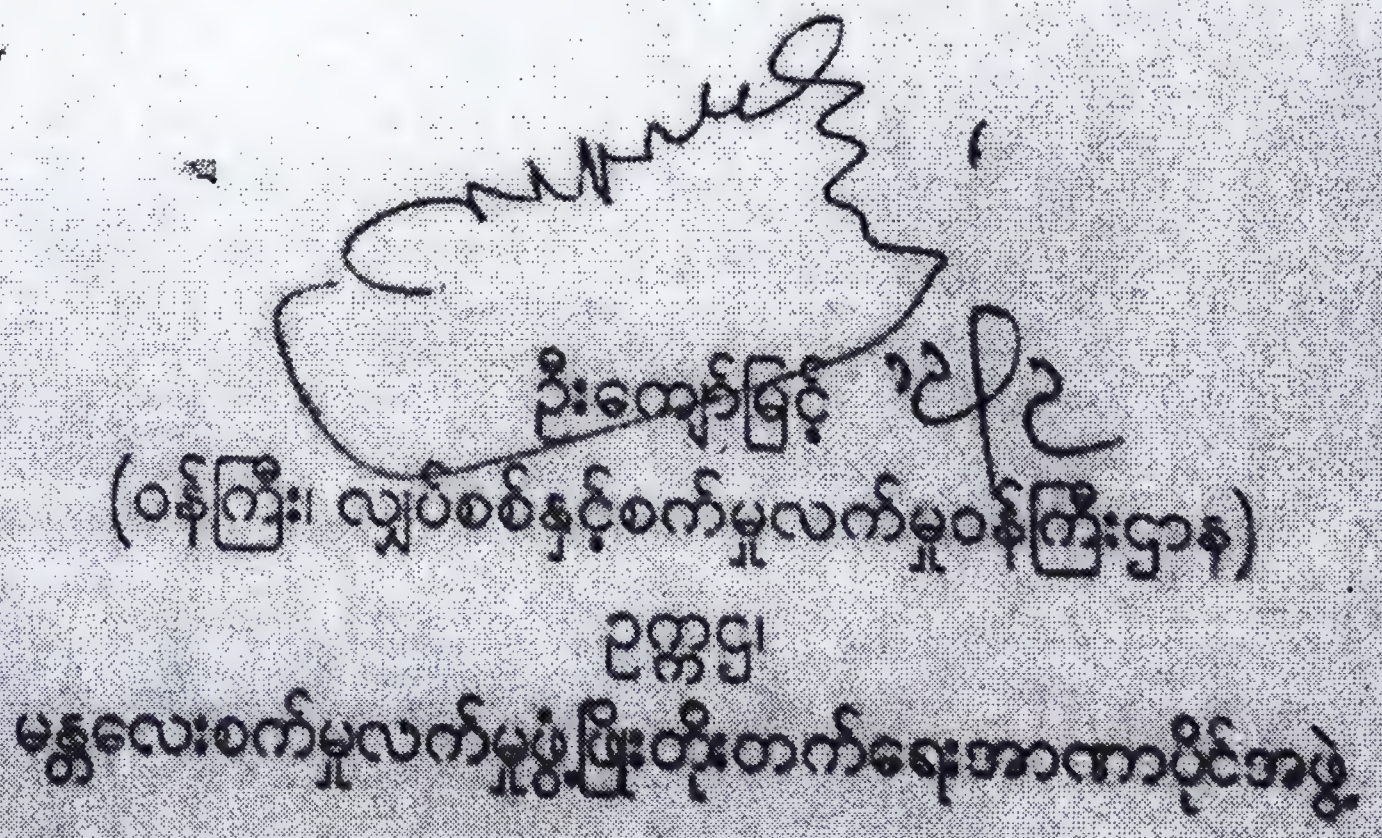 ဦးကျော်မြင့်
(ဝန်ကြီး၊ လျှပ်စစ်နှင့်စက်မှုလက်မှုဝန်ကြီးဌာန)
ဥက္ကဌ၊
မန္တလေးစက်မှုလက်မှုဖွံ့ဖြိုးတိုးတက်ရေးအာဏာပိုင်အဖွဲ့